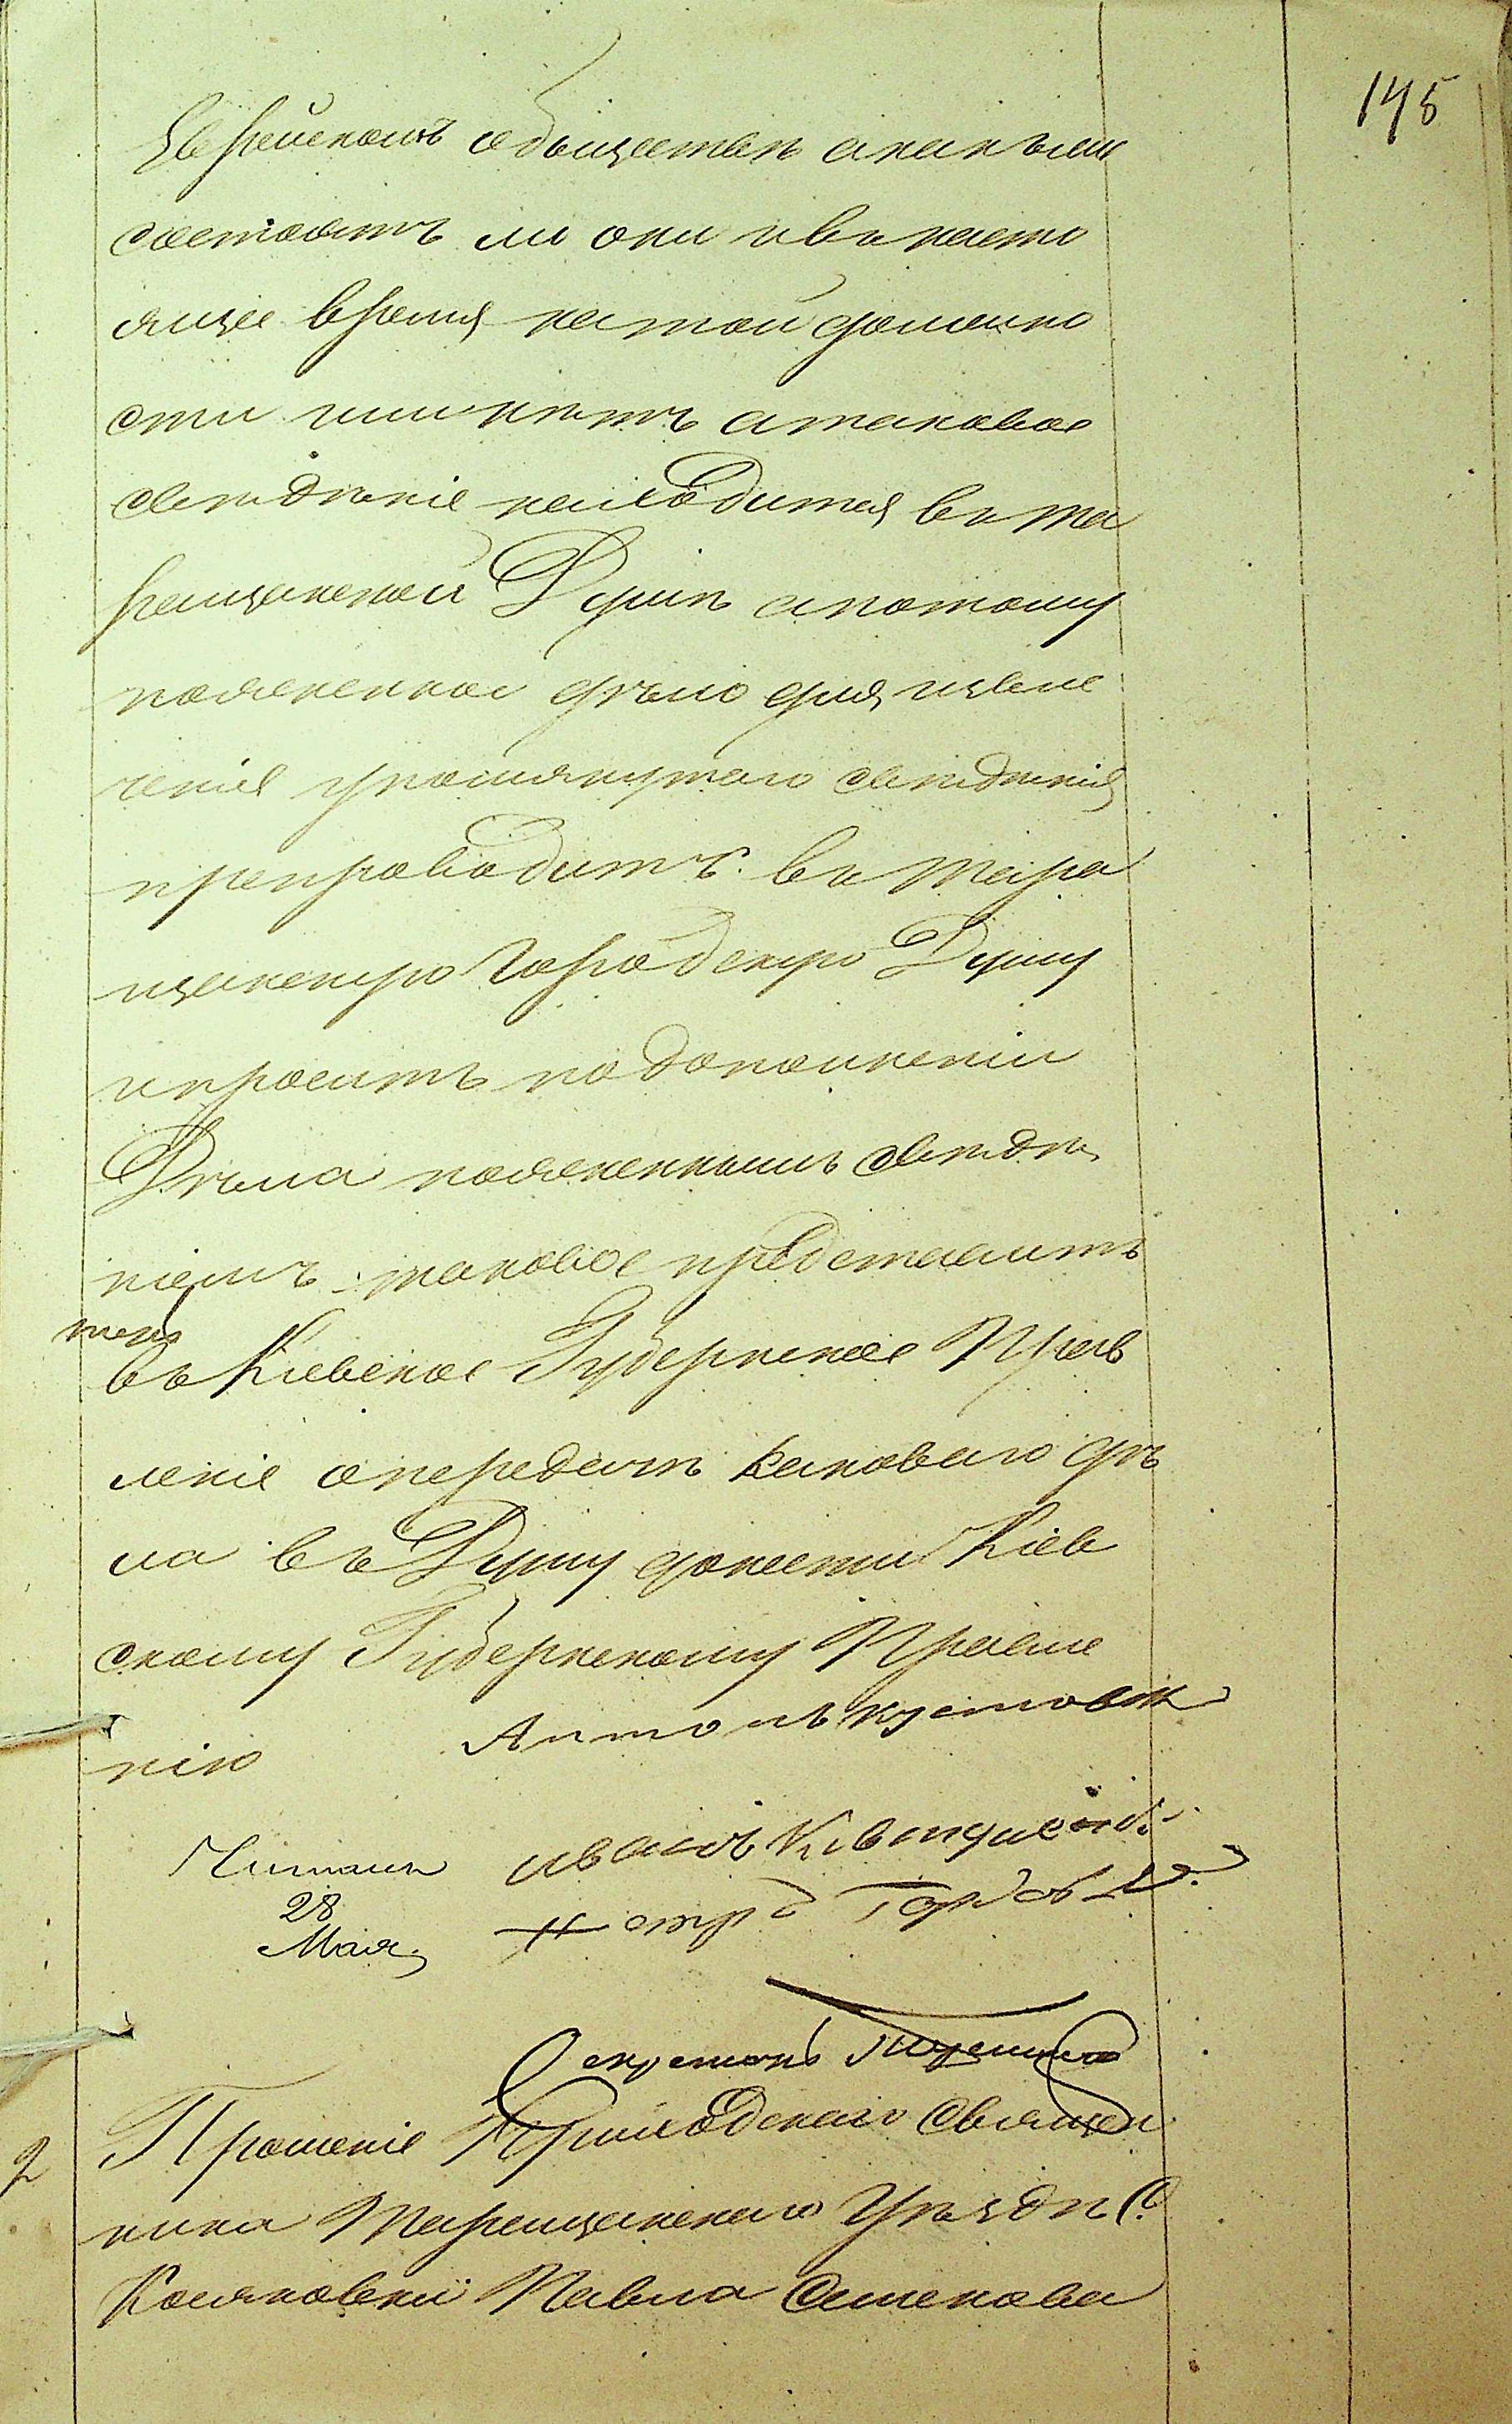 145
Еврейскомъ обществѣ а какъ
состоитъ ли они и въ насто
ящее время на той должно
сти или нѣтъ а таковое
свѣдѣніе находится въ Та
ращанской Думѣ а потому
поясненное дѣло для извле
ченія упомянутаго свѣдѣнія
препроводить въ Тара
щанскую Городскую Думу
и просить по дополненіи
Дѣла поясненнымъ свѣдѣ
ніемъ таковое представить
въ Кіевское Губернское Прав
леніе о передачѣ каковаго дѣ
ла въ Думу донести Кіев
скому Губернскому Правле
нію
Антонъ
Читалъ
28
Мая
иванъ
Петръ
Секретарь
2
Прошеніе Приходскаго Священ
ника Таращанскаго Уѣзда С.
Косяковки Павла Семенова